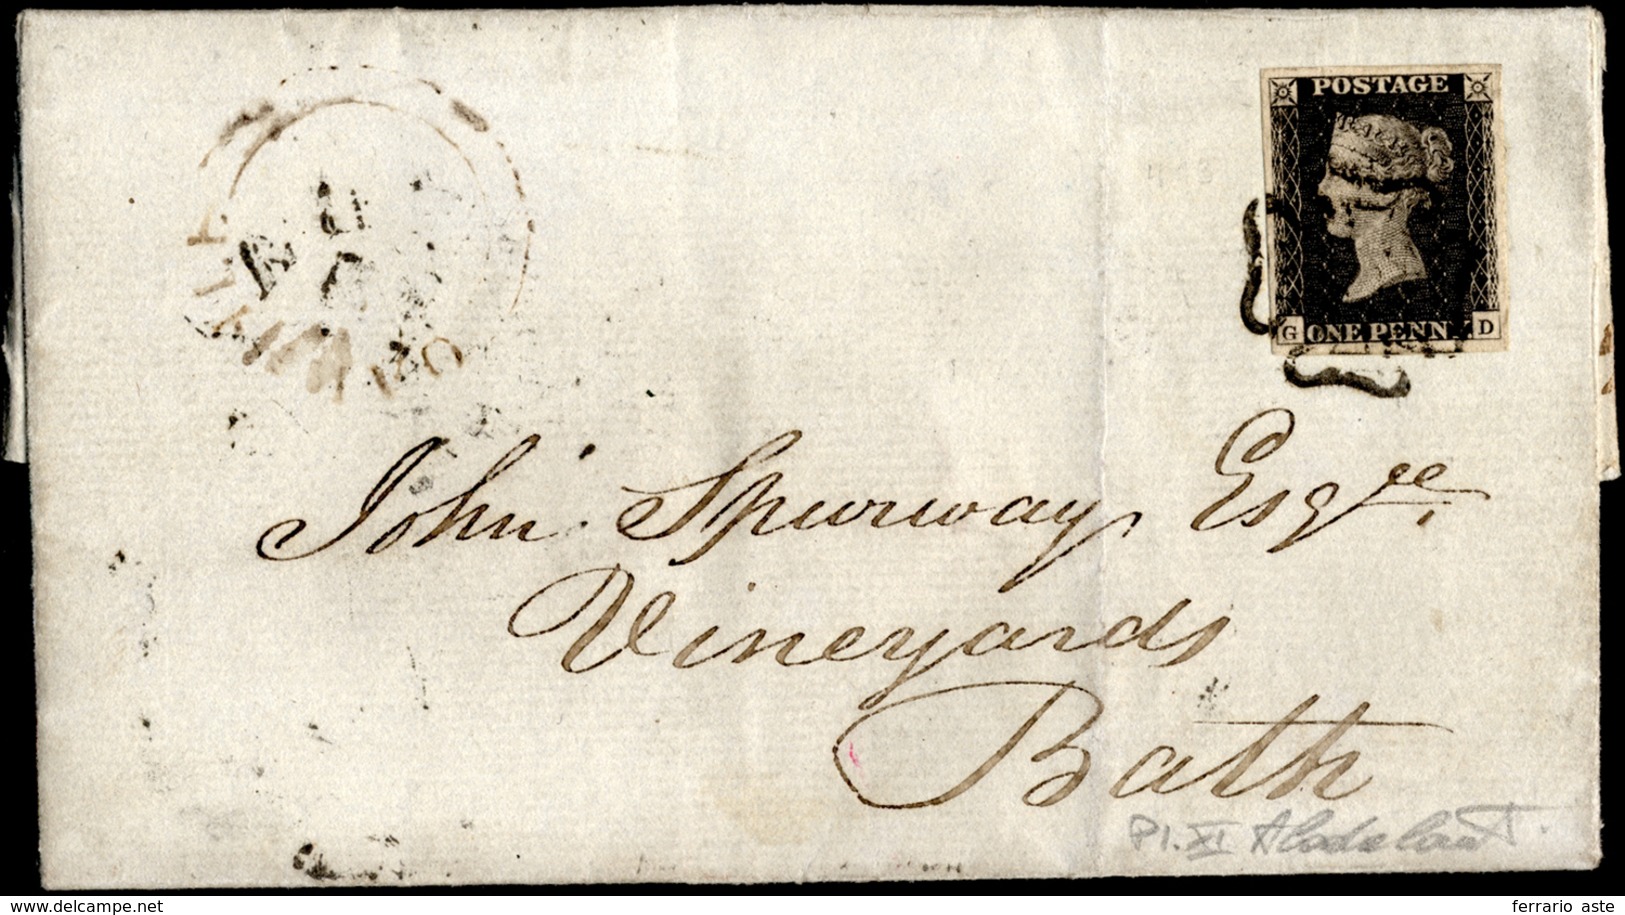 POSTAGE
G ONE PENNY D
John Spurway Esqre.
Vineyards
Bath
Pl. XI
www.delcampe.net
ferrario aste